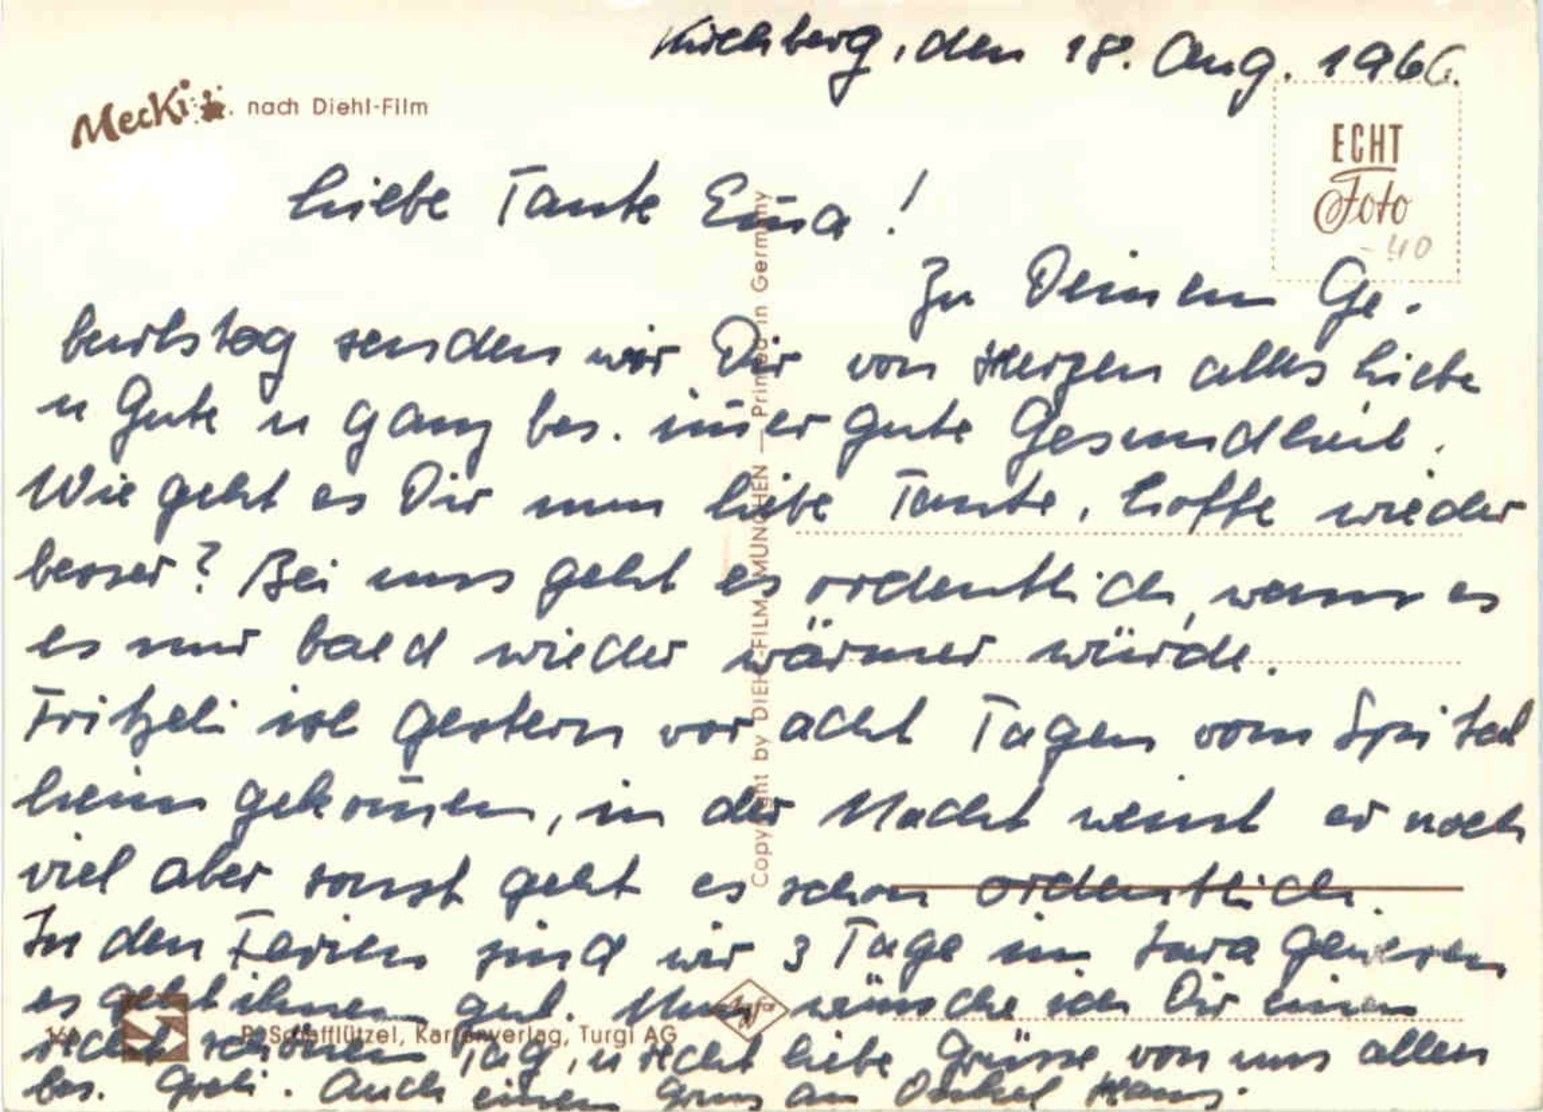 Kirchberg, den 18. Aug. 1966.
Mecki nach Diehl-Film
ECHT
Foto
-40
Liebe Tante Em̄a!
Zu Deinem Ge-
burtstag senden wir Dir von Herzen alles Liebe
u Gute u ganz bes. im̄er gute Gesundheit.
Wie geht es Dir nun liebe Tante, hoffe wieder
besser? Bei uns geht es ordentlich, wenn es
es nur bald wieder wärmer würde.
Fritzeli ist gestern vor acht Tagen vom Spital
heim gekom̄en, in der Nacht weint er noch
viel aber sonst geht es schon ordentlich.
In den Ferien sind wir 3 Tage im Jura gewesen
es geht ihnen gut. Nun wünsche ich Dir einen
recht schönen Tag, u recht liebe Grüsse von uns allen
bes. Greti. Auch einen Gruss an Onkel Hans.
Copyright by DIEHL-FILM, MÜNCHEN — Printed in Germany
Agfa
R. Schafflützel, Kartenverlag, Turgi AG